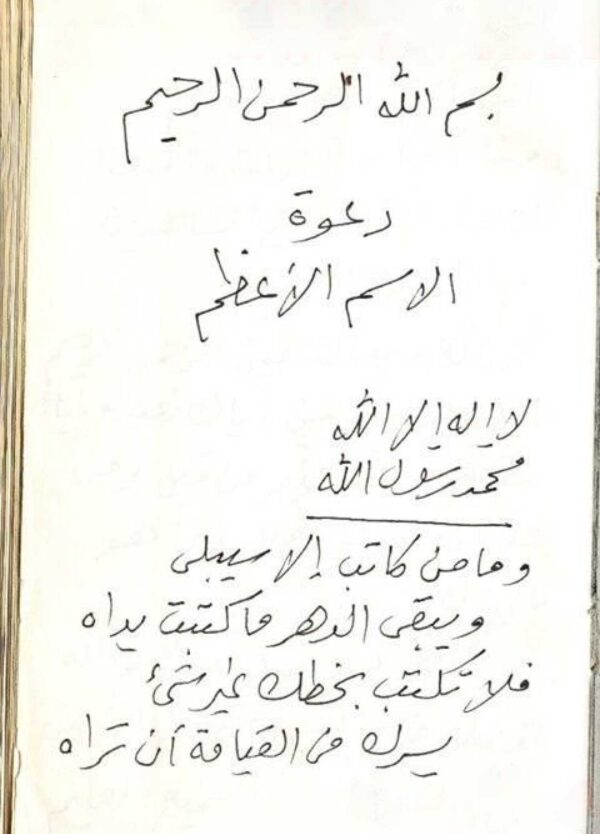 بسم الله الرحمن الرحيم
دعوة
الاسم الأعظم
لا إله إلا الله
محمد رسول الله
وما من كاتب إلا سيبلى
ويبقى الدهر ما كتبت يداه
فلا تكتب بخطك غير شئ
يسرك فى القيامة أن تراه